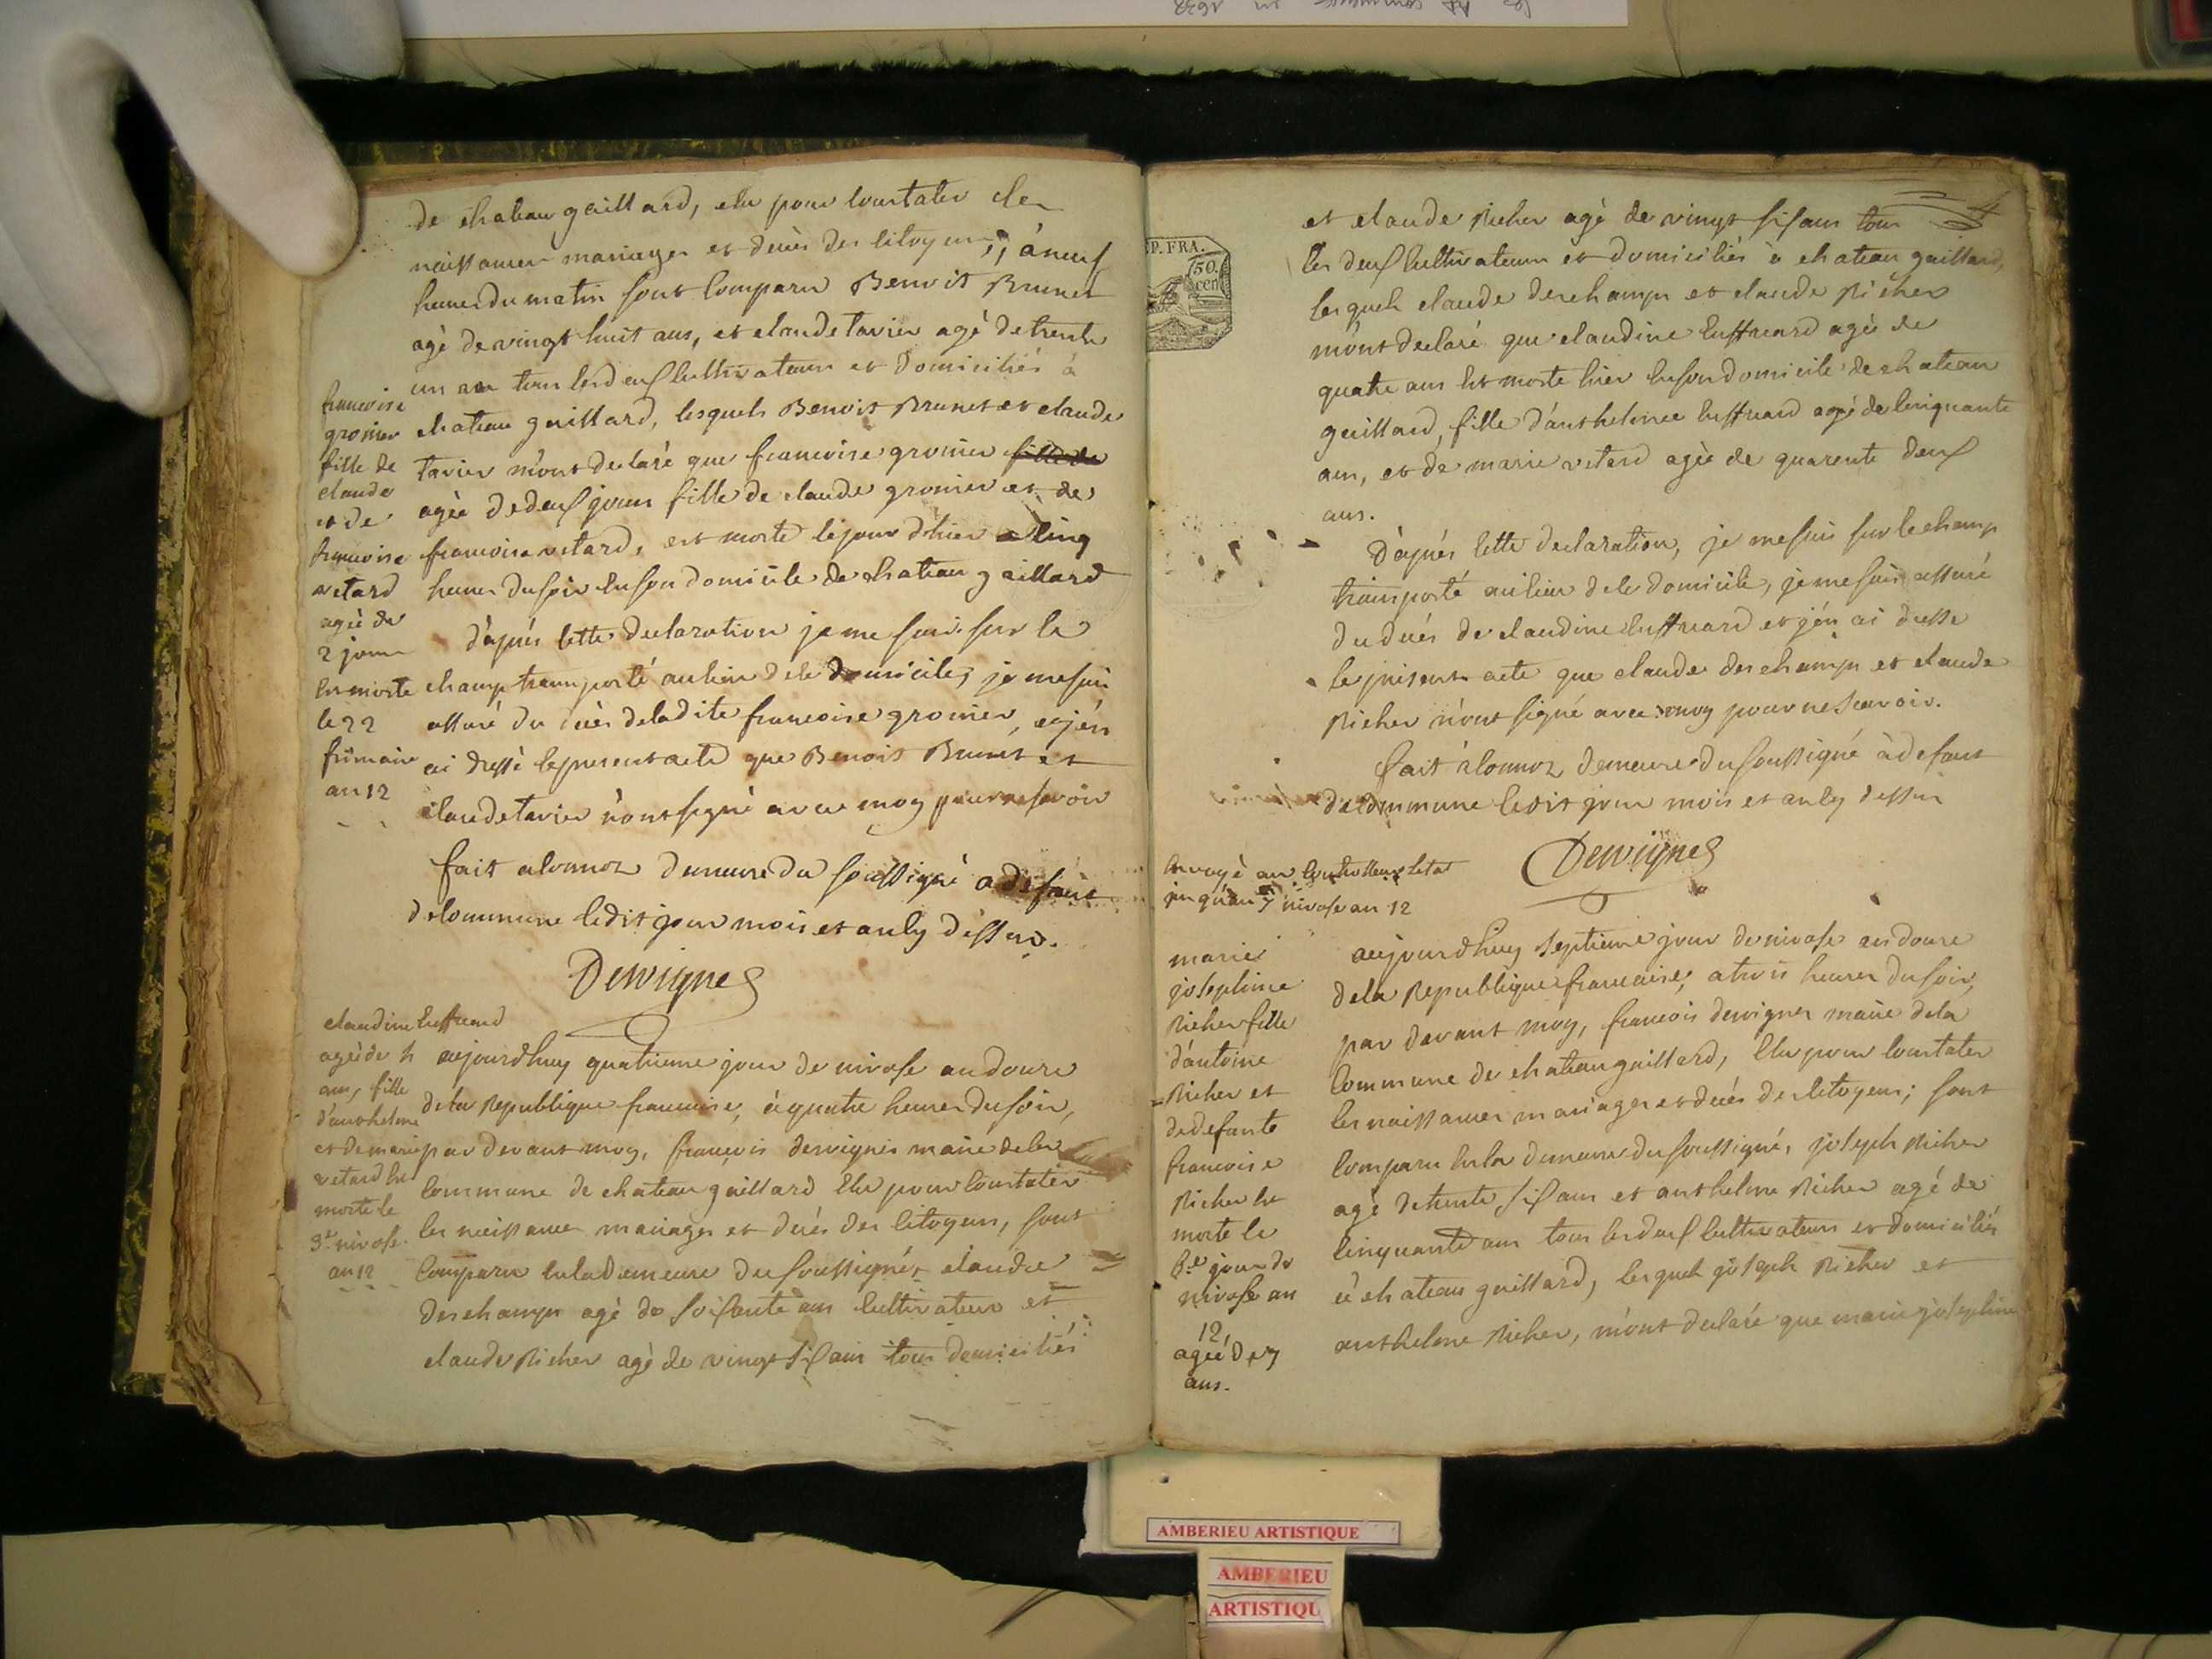 de chateau gaillard, elu pour Constater les
naissances mariages et decès des Citoyens; à neuf
heures du matin sont Comparu Benoit Brunet
agé de vingt huit ans, et claude tavier agé de trente
un an tous les deux Cultivateurs et Domiciliés à
chateau gaillard, lesquels Benoit Brunet et claude
tavier m'ont declaré que francoise gronier fille de
agée de deux jours fille de claude gronier et de
francoise vetard, est morte le jour d'hier a Cinq
heures du soir en son domicile de chateau gaillard
d'après Cette declaration je me suis sur le
champ transporté au lieu de Ce domicile, je me suis
assuré du decès de ladite francoise gronier, et j'en
ai dressé le present acte que Benoit Brunet et
claude tavier n'ont signé avec moy pour ne savoir
fait a lonnoz demeure du soussigné a defaut
de Commune Ledit jour mois et an Cy dessus.
Dervignes
francoise
gronier
fille de
claude
et de
francoise
vetard
agée de
2 jours
est morte
le 22
frimaire
an 12
claudine Cuffreard
agée de 4
ans, fille
d'anthelme
et de marie
vetard est
morte le
3e nivose
an 12
aujourdhuy quatrieme jour de nivose an douze
de la Republique francaise, à quatre heures du soir,
par devant moy, françois dervignes maire de la
Commune de chateau gaillard Elu pour Constater
les naissances mariages et decès des Citoyens, sont
Comparu en la demeure du soussigné, claude
deschamps agé de soixante ans Cultivateur et
claude Richer agé de vingt six ans tous domiciliés
4
P. FRA.
50.
cen
et claude Richer agé de vingt six ans tous
les deux Cultivateurs et domiciliés à chateau gaillard,
lesquels claude deschamps et claude Richer
m'ont declaré que claudine Cuffreard agée de
quatre ans est morte hier en son domicile de chateau
gaillard, fille d'anthelme Cuffreard agé de Cinquante
ans, et de marie vetard agée de quarente deux
ans.
D'après Cette declaration, je me suis sur le champ
transporté au lieu de Ce domicile, je me suis assuré
du decès de claudine Cuffreard et j'en ai dressé
le present acte que claude deschamps et claude
Richer n'ont signé avec moy pour ne scavoir.
fait à lonnoz demeure du soussigné à defaut
de Commune Ledit jour mois et an Cy dessus
Dervignes
Envoyé au Controlleur l'etat
jusqu'au 7 nivose an 12
marie
josephine
Richer fille
d'antoine
Richer et
de defunte
francoise
Richer est
morte le
6e jour de
nivose an
12
agée de 7
ans.
aujourdhuy septieme jour de nivose an douze
de la Republique francaise, a trois heures du soir,
par devant moy, francois dervignes maire de la
Commune de chateau gaillard, Elu pour Constater
les naissances mariages et decés des Citoyens; sont
Comparu en la demeure du soussigné, joseph Richer
agé de trente six ans et anthelme Richer agé de
Cinquante ans tous les deux Cultivateurs et domiciliés
à chateau gaillard, lesquels joseph Richer et
anthelme Richer, m'ont declaré que marie josephine
AMBERIEU ARTISTIQUE
AMBERIEU
ARTISTIQU